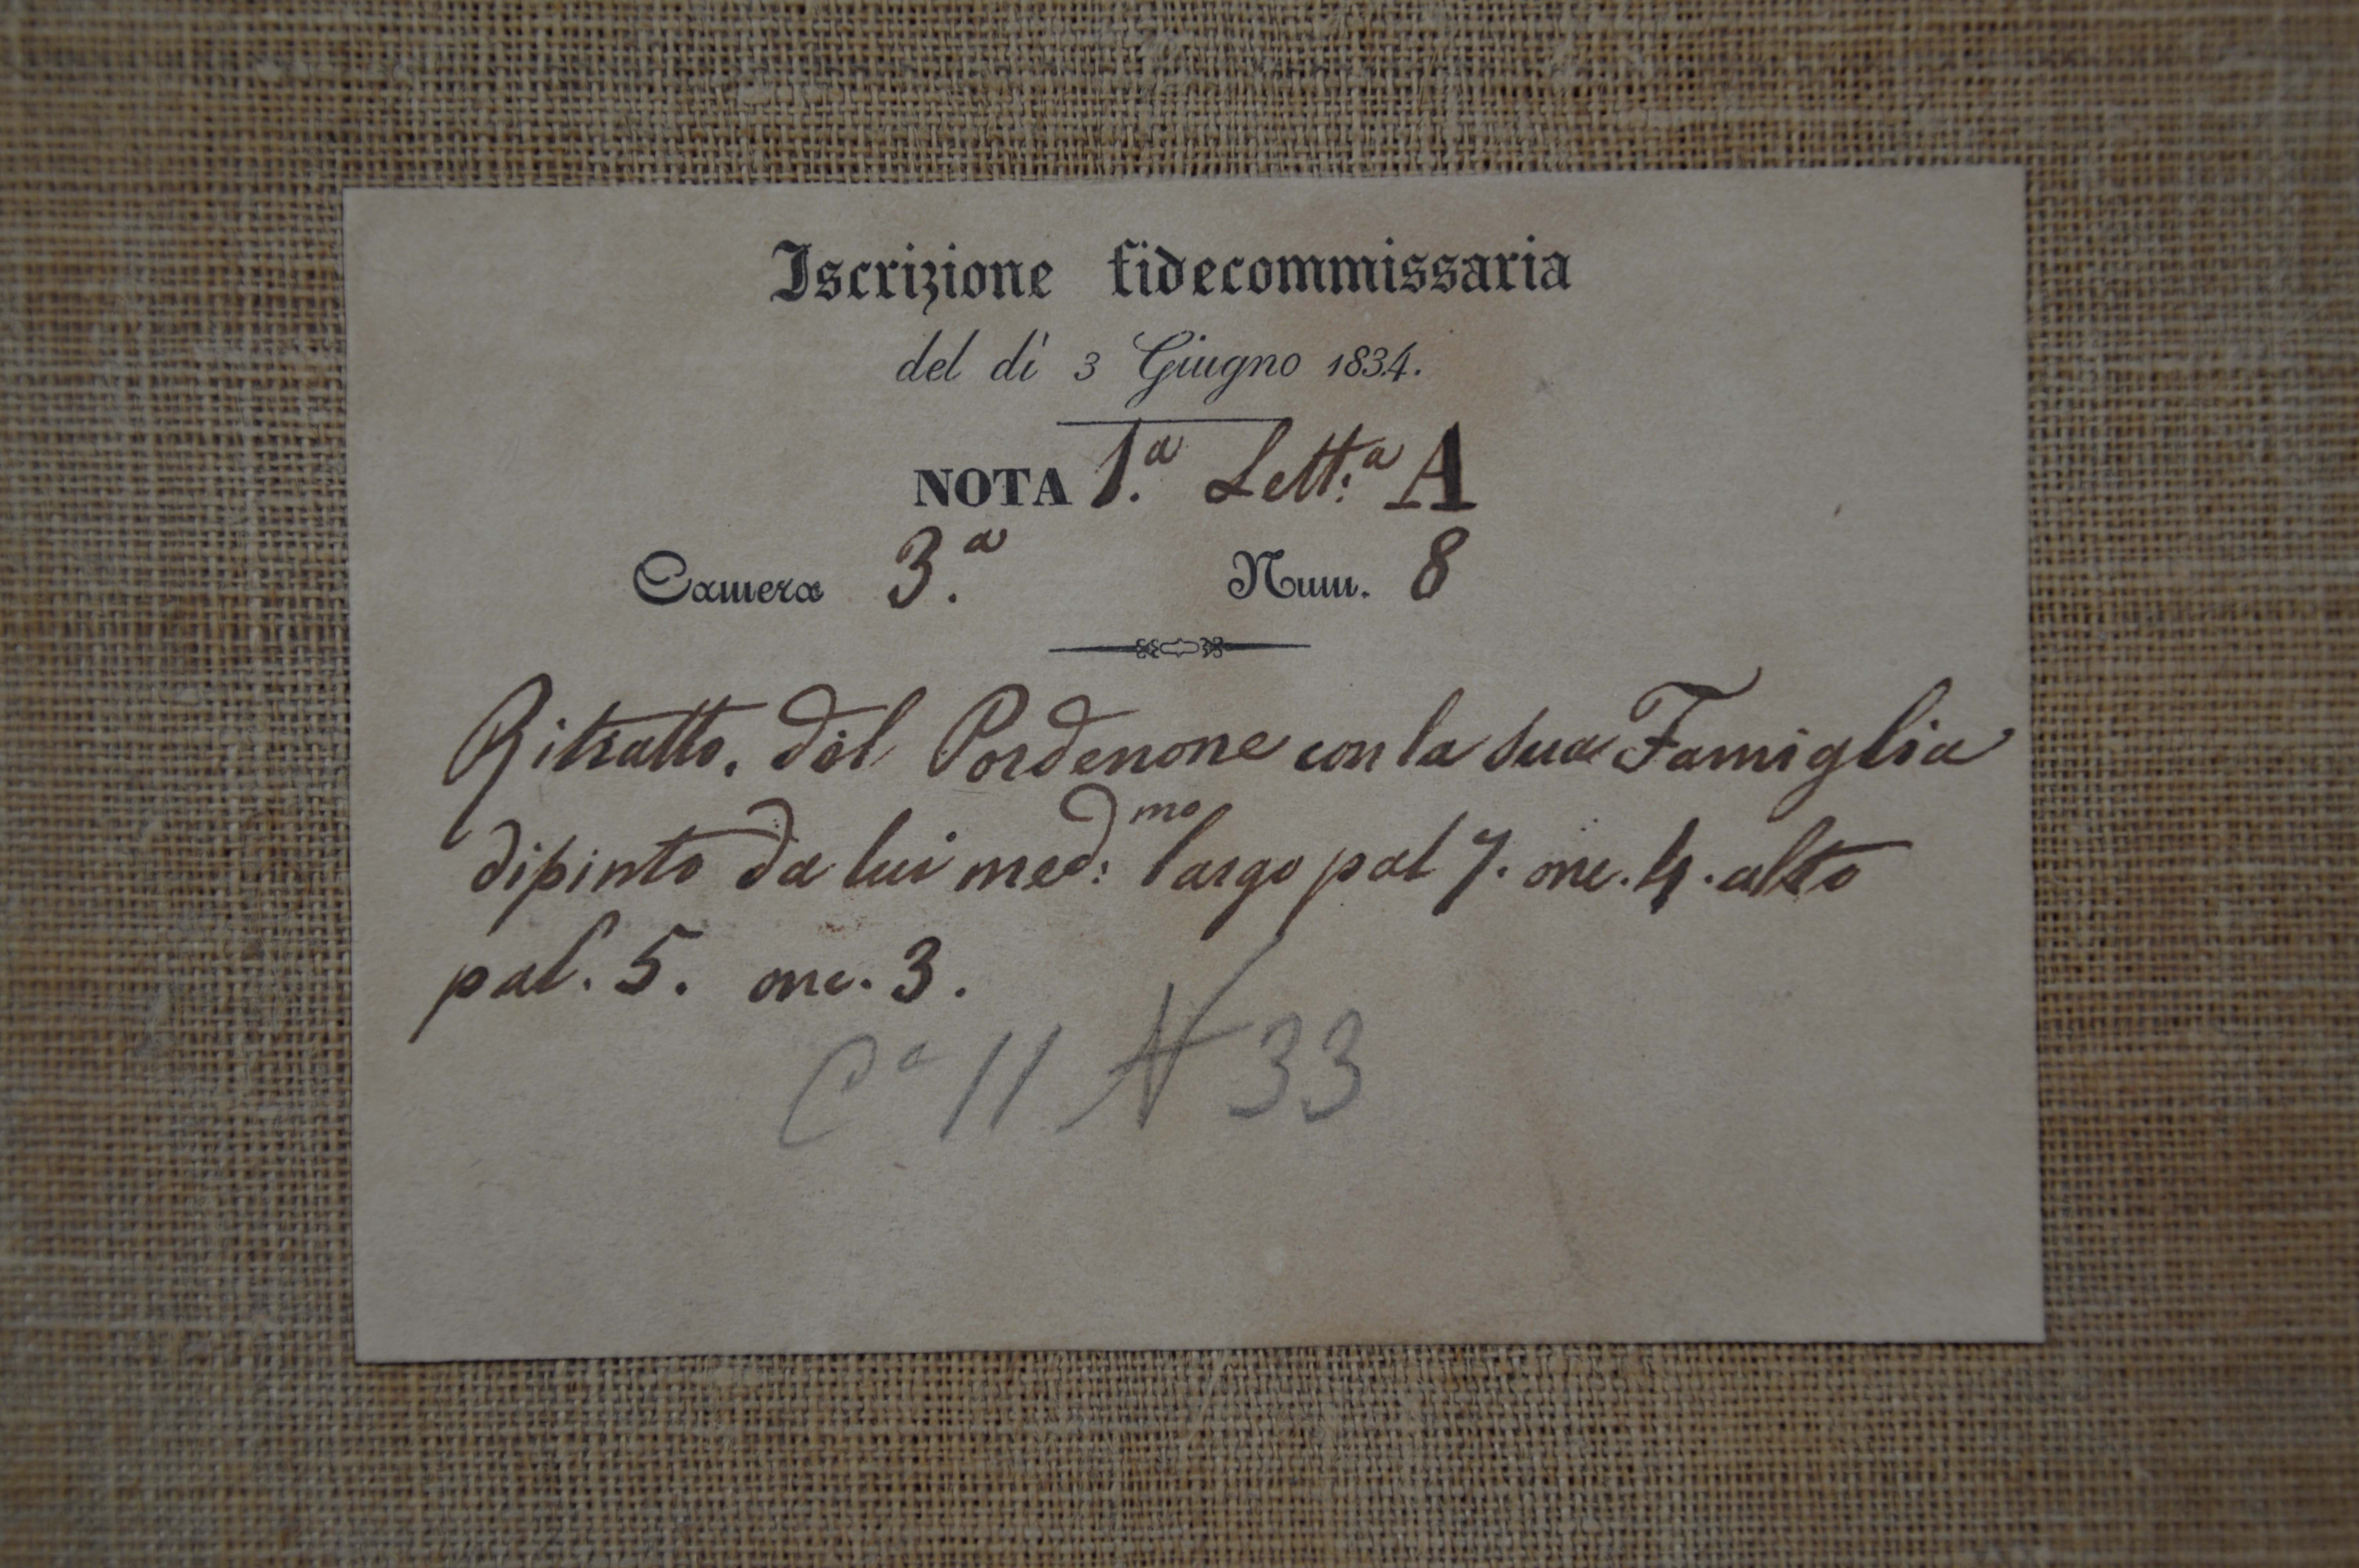 Iscrizione fidecommissaria
del dì 3 Giugno 1834.
NOTA 1.ª Lett:ª A
Camera 3.ª Num. 8
Ritratto. del Pordenone con la sua Famiglia
dipinto da lui med:mo largo pal 7. onc. 4. alto
pal. 5. onc. 3.
Cª 11 N 33